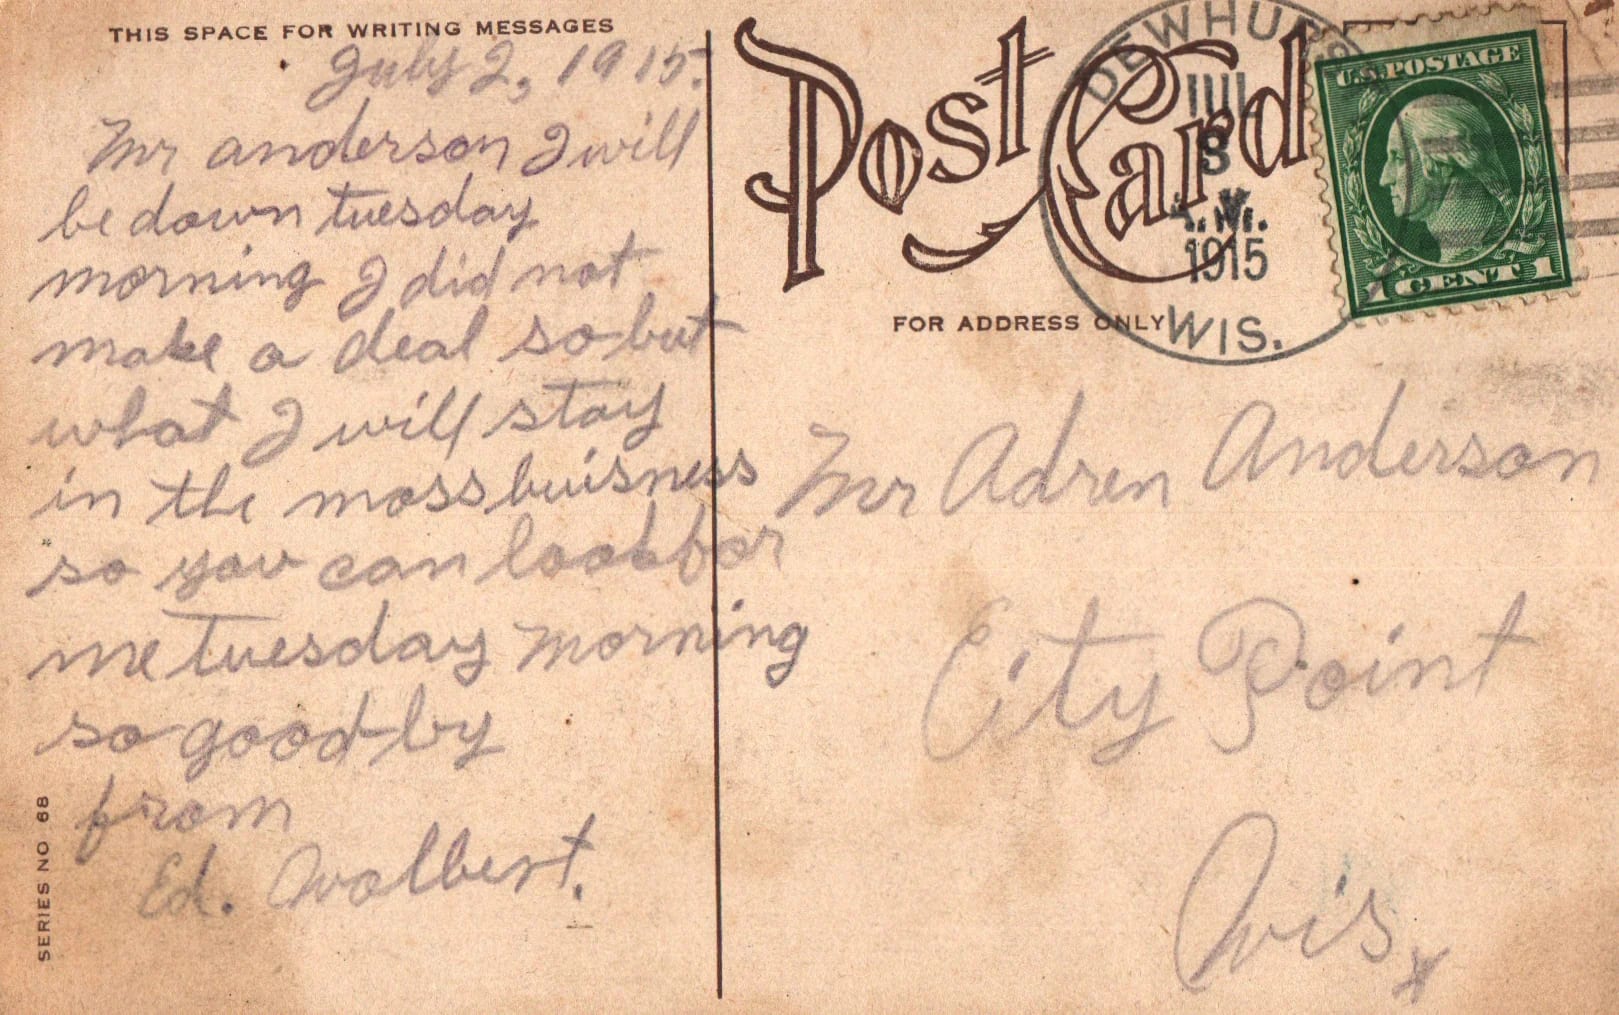 THIS SPACE FOR WRITING MESSAGES
July 2, 1915.
Mr anderson I will
be down tuesday
morning I did not
make a deal so but
what I will stay
in the moss buisness
so you can look for
me tuesday morning
so good-by
from
Ed. Walbert.
SERIES NO 68
Post Card
DEWHURST
JUL
8
A.M.
1915
WIS.
U.S. POSTAGE
1 CENT 1
FOR ADDRESS ONLY
Mr Adren Anderson
City Point
Wis